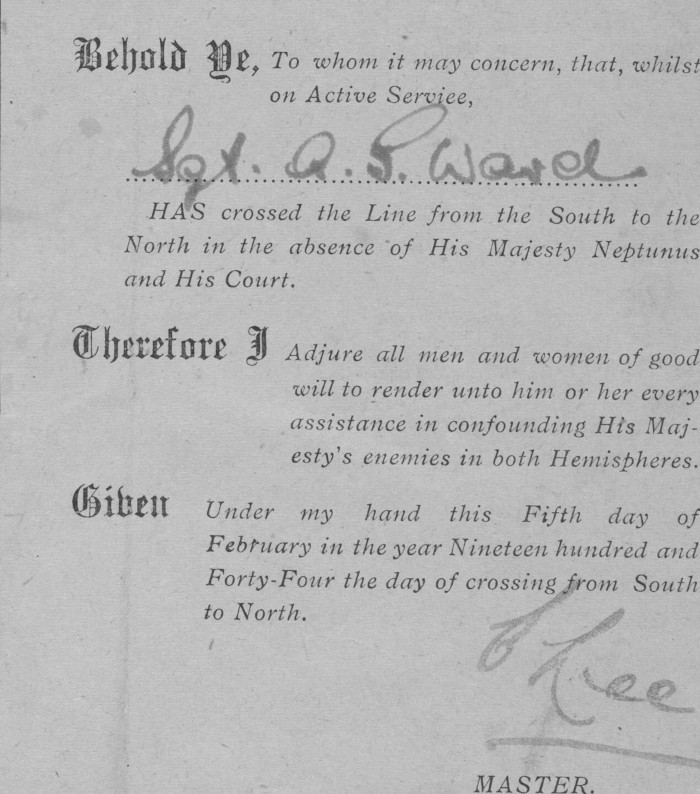 Behold Ye, To whom it may concern, that, whilst
on Active Service,
Sgt. A. S. Ward
HAS crossed the Line from the South to the
North in the absence of His Majesty Neptunus
and His Court.
Therefore I Adjure all men and women of good
will to render unto him or her every
assistance in confounding His Maj-
esty's enemies in both Hemispheres.
Given Under my hand this Fifth day of
February in the year Nineteen hundred and
Forty-Four the day of crossing from South
to North.
Lee
MASTER.